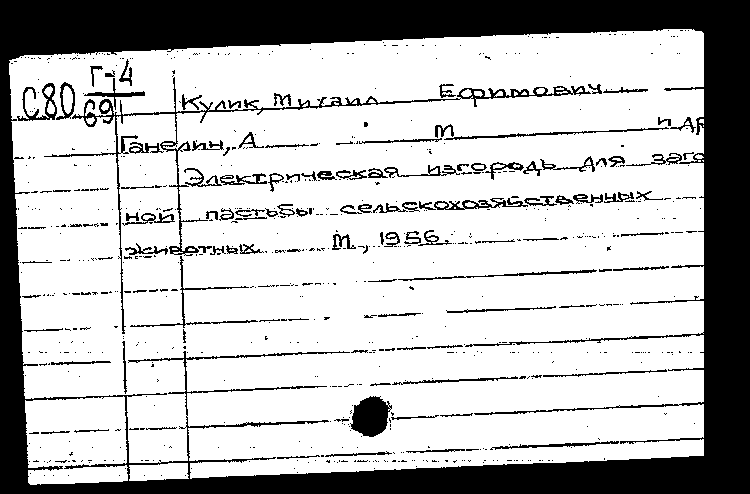 Г-4
С80 69 Кулик, Михаил Ефимович
Ганелин, А М и др
Электрическая изгородь для заго
ной пастьбы сельскохозяйственных
животных М., 1956.